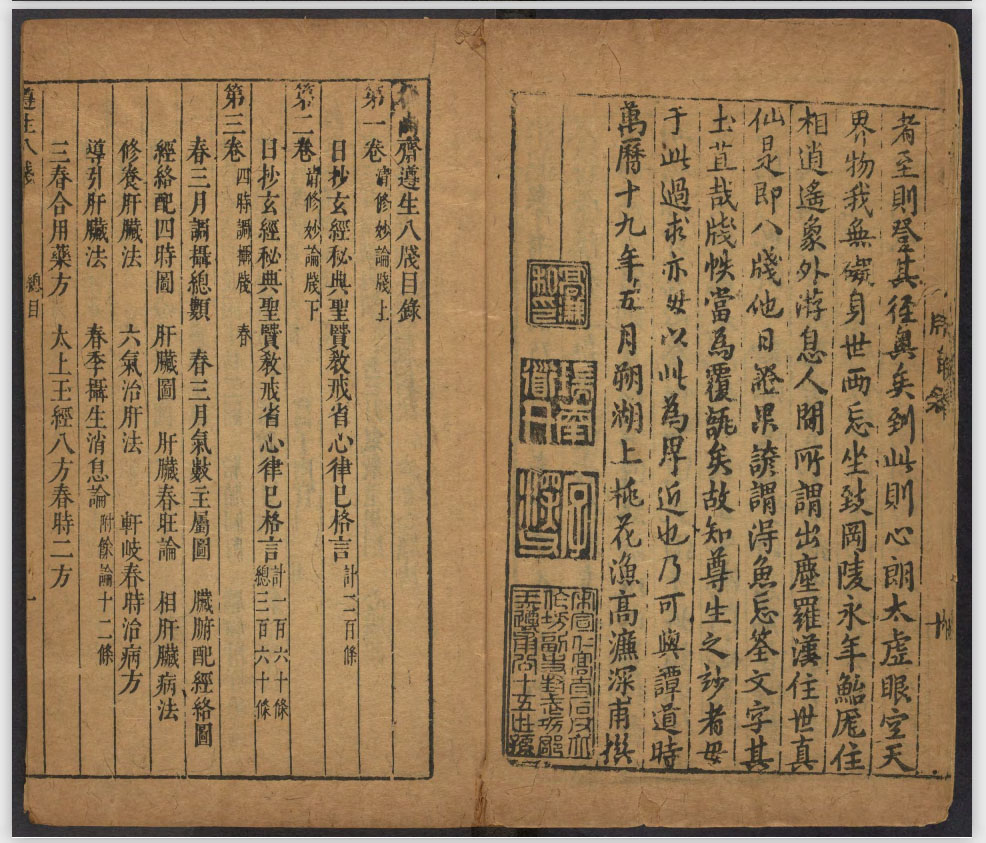 者至則登其徑奧矣到此則心朗太虛眼空天
界物我無礙身世兩忘坐致岡陵永年鮐厖住
相逍遙象外游息人間所謂出塵羅漢住世真
仙是即八牋他日證果諺謂得魚忘筌文字其
土苴哉牋帙當為覆瓿矣故知尊生之妙者毋
于此過求亦毋以此為厚近也乃可與譚道時
萬曆十九年五月朔湖上桃花漁高濂深甫撰
高濂
瑞南
道人
齋遵生八牋目錄
第一卷 清修妙論牋上
日抄玄經秘典聖賢教戒省心律己格言 計二百條
第二卷 清修妙論牋下
日抄玄經秘典聖賢教戒省心律己格言 計一百六十條 總三百六十條
第三卷 四時調攝牋 春
春三月調攝總類 春三月氣數主屬圖 臟腑配經絡圖
經絡配四時圖 肝臟圖 肝臟春旺論 相肝臟病法
修養肝臟法 六氣治肝法 軒岐春時治病方
導引肝臟法 春季攝生消息論 附餘論十二條
三春合用藥方 太上玉經八方春時二方
遵生八牋 總目 一